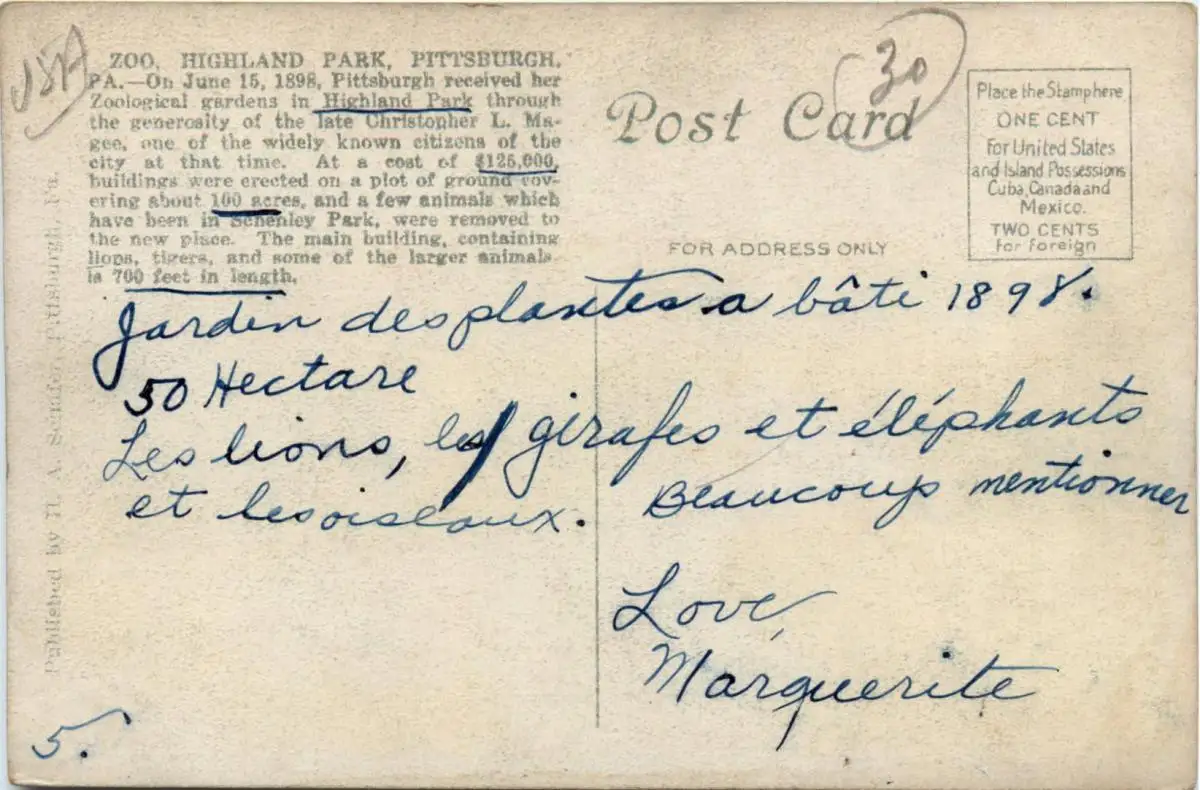 USA
ZOO, HIGHLAND PARK, PITTSBURGH,
PA.—On June 15, 1898, Pittsburgh received her
Zoological gardens in Highland Park through
the generosity of the late Christopher L. Ma-
gee, one of the widely known citizens of the
city at that time. At a cost of $125,000,
buildings were erected on a plot of ground cov-
ering about 100 acres, and a few animals which
have been in Schenley Park, were removed to
the new place. The main building, containing
lions, tigers, and some of the larger animals
is 700 feet in length.
30
Post Card
FOR ADDRESS ONLY
Place the Stamp here
ONE CENT
For United States
and Island Possessions
Cuba, Canada and
Mexico.
TWO CENTS
for foreign
Published by H. A. Pittsburgh, Pa.
Jardin des plantes a bâti 1898.
50 Hectare
Les lions, les girafes et éléphants
et les oiseaux. Beaucoup mentionner
Love,
Marguerite
5.